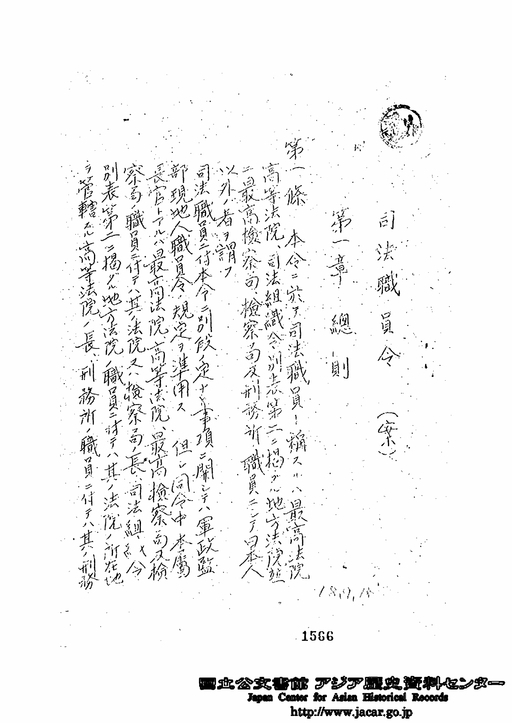 司法職員令　(案)
第一章　總則
第一條　本令ニ於テ司法職員ト稱スルハ最高法院
高等法院、司法組織令別表第二ニ掲グル地方法院竝
ニ最高檢察局、檢察局及刑務所ノ職員ニシテ日本人
以外ノ者ヲ謂フ
司法職員ニ付本令ニ別段ノ定ナキ事項ニ關シテハ軍政監
部現地人職員令ノ規定ヲ準用ス　但シ同令中本屬
長官トアルハ最高法院、高等法院、最高檢察局及檢
察局ノ職員ニ付テハ其ノ法院又ハ檢察局ノ長、司法組織令
別表第二ニ掲グル地方法院ノ職員ニ付テハ其ノ法院ノ所在地
ヲ管轄スル高等法院ノ長、刑務所ノ職員ニ付テハ其ノ刑務
1566
国立公文書館 アジア歴史資料センター
Japan Center for Asian Historical Records
http://www.jacar.go.jp